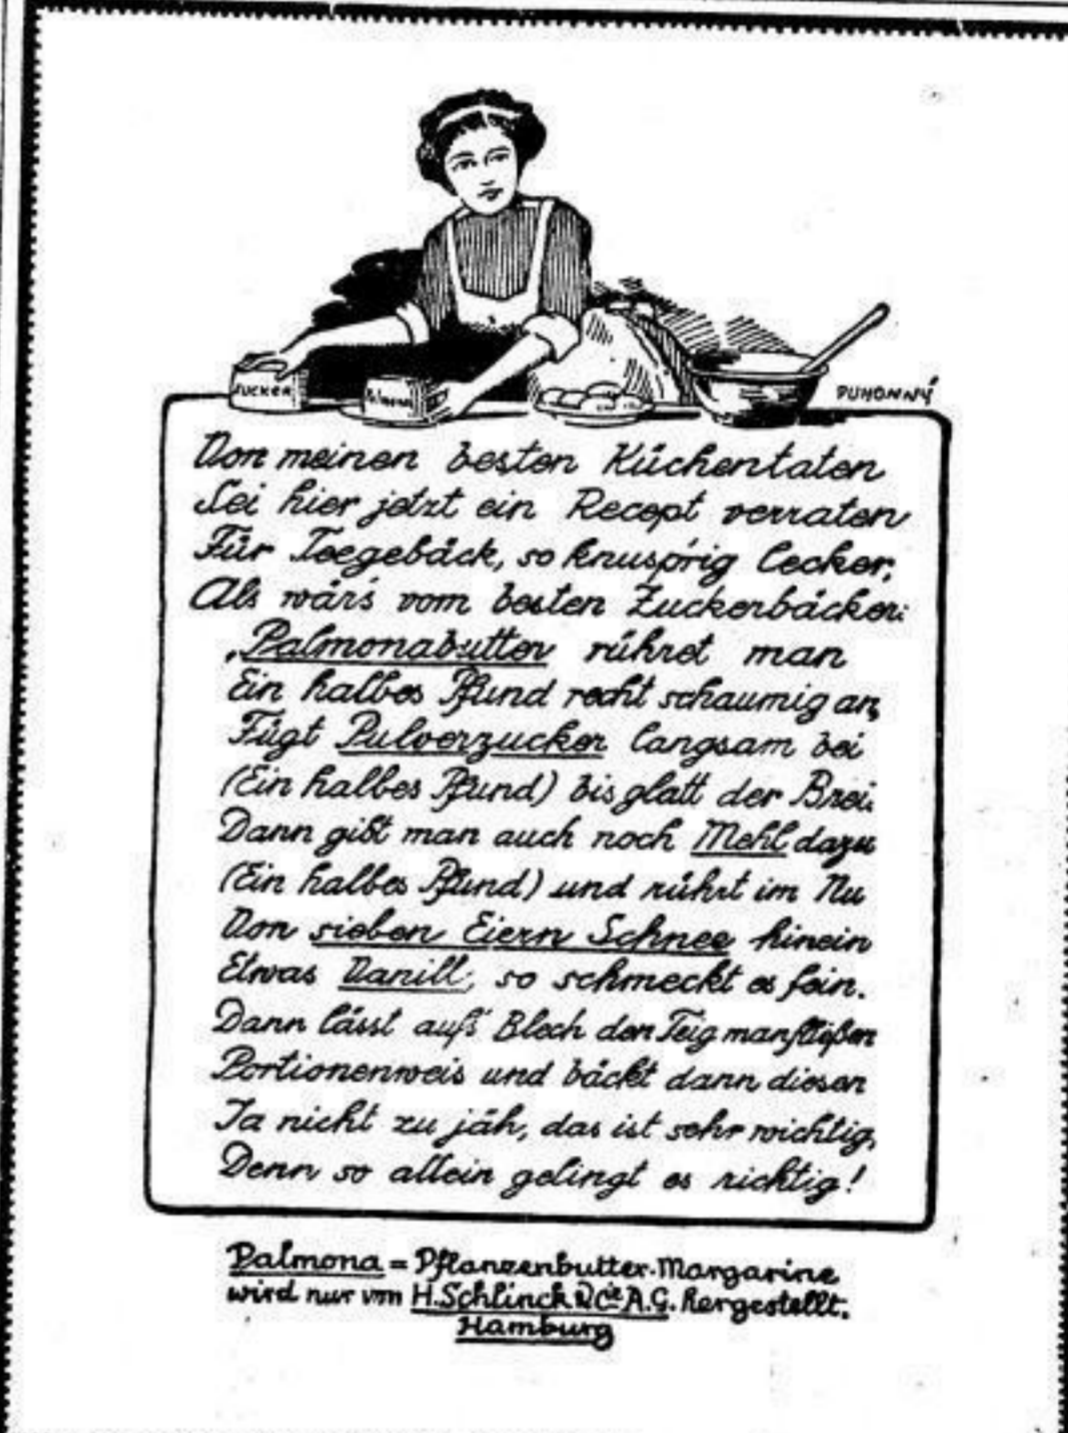 SUCKER
Palmona
PUHONNÝ
Von meinen besten Küchentaten
Sei hier jetzt ein Recept verraten
Für Teegebäck, so knusp'rig lecker,
Als wär's vom besten Zuckerbäcker:
„Palmonabutter rühret man
Ein halbes Pfund recht schaumig an,
Fügt Pulverzucker langsam bei
(Ein halbes Pfund) bis glatt der Brei.
Dann gibt man auch noch Mehl dazu
(Ein halbes Pfund) und rührt im Nu
Von sieben Eiern Schnee hinein
Etwas Vanill', so schmeckt es fein.
Dann lässt auf's Blech den Teig man fließen
Portionenweis und bäckt dann diesen
Ja nicht zu jäh, das ist sehr wichtig,
Denn so allein gelingt es richtig!
Palmona = Pflanzenbutter-Margarine
wird nur von H. Schlinck & Cie A.G. hergestellt.
Hamburg